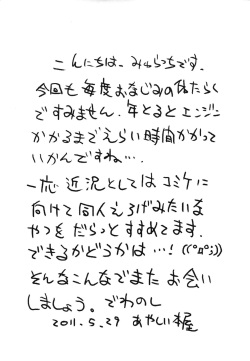 こんにちは、みゅらっちです。
今回も毎度おなじみの体たらく
ですみません。年とるとエンジン
かかるまでえらい時間かかって
いかんですね…。
一応近況としてはコミケに
向けて同人えろげみたいな
やつをだらっとすすめてます。
できるかどうかは…!((°Д°;))
そんなこんなでまたお会い
しましょう。でわのし
2011.5.29 あやしい本屋